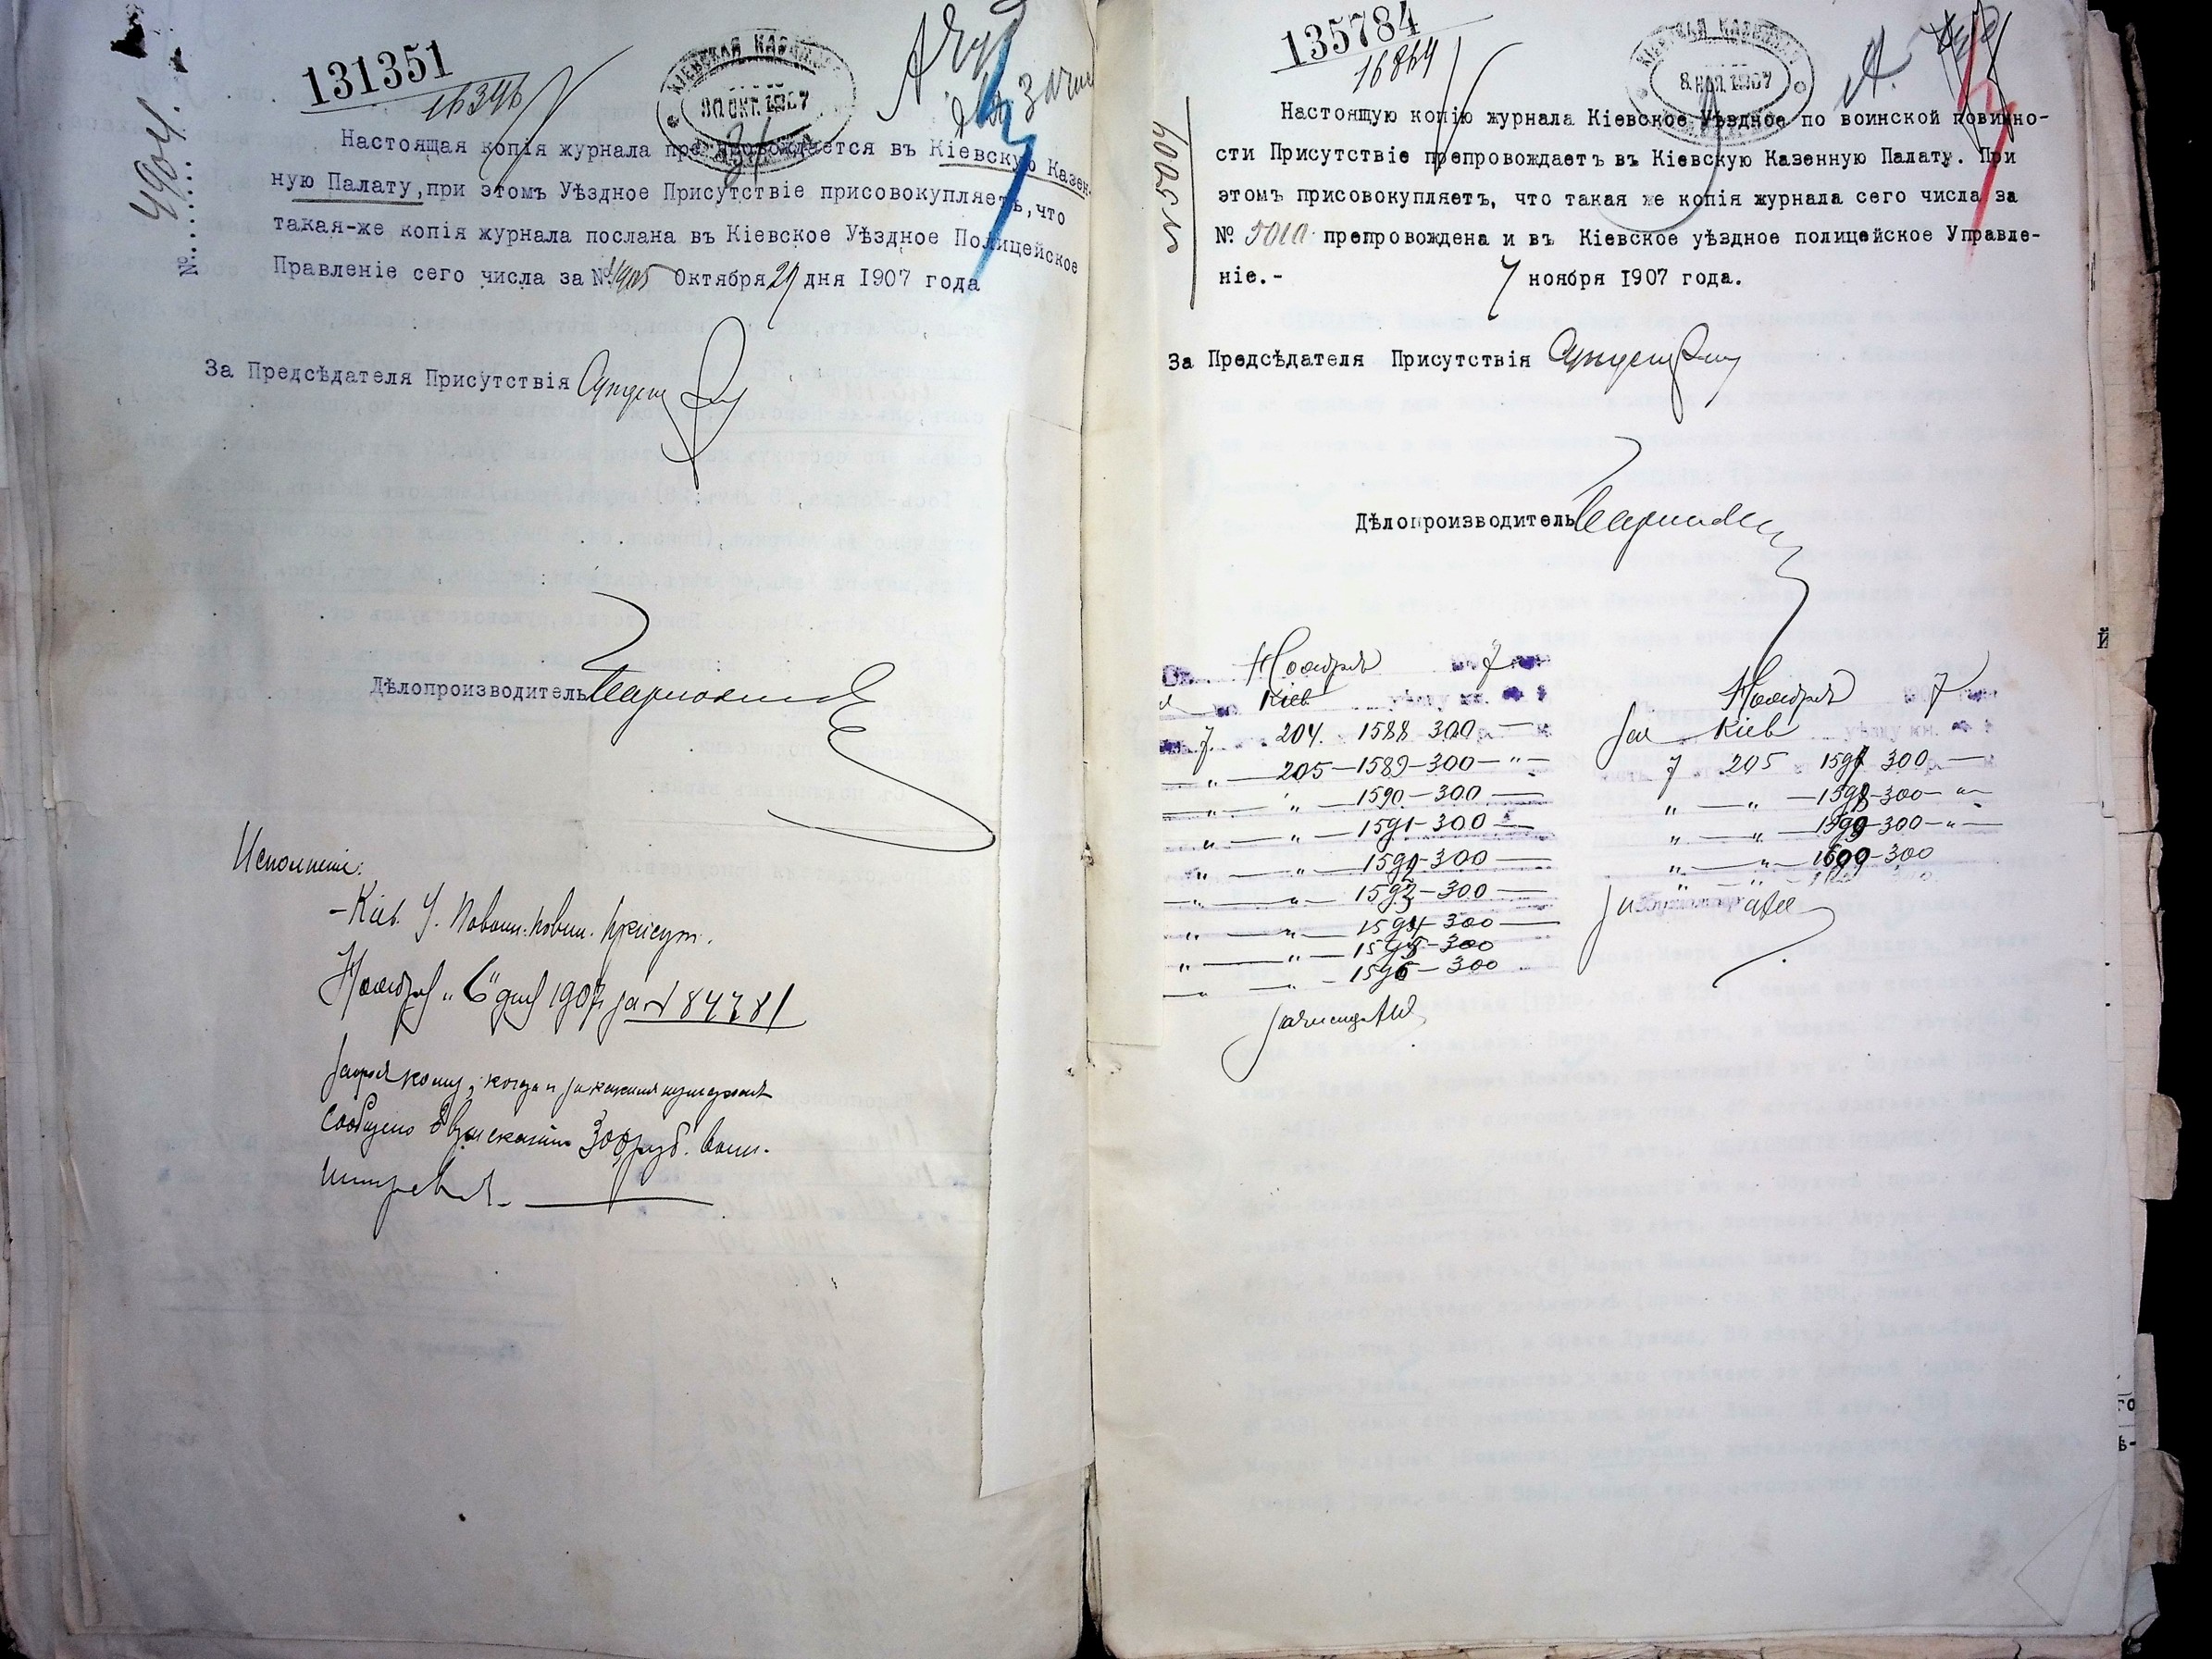 131351
16346
КІЕВСКАЯ КАЗЕН
30 ОКТ. 1907
№ 4904.
Настоящая копія журнала препровождается въ Кіевскую Казен-
ную Палату,при этомъ Уѣздное Присутствіе присовокупляетъ,что
такая-же копія журнала послана въ Кіевское Уѣздное Полицейское
Правленіе сего числа за № 4905 Октября 29 дня 1907 года
За Предсѣдателя Присутствія
Дѣлопроизводитель
Исполненіе:
-Кіев. У. по воин. повин. присут.
Ноября "6" дня 1907 за № 84781
кому, когда и за какимъ нумеромъ
сообщено о взысканіи 300 руб. воин.
штрафа.
135784
16864
КІЕВСКАЯ КАЗЕН
8 НОЯ 1907
Настоящую копію журнала Кіевское Уѣздное по воинской повинно-
сти Присутствіе препровождаетъ въ Кіевскую Казенную Палату. При
этомъ присовокупляетъ, что такая же копія журнала сего числа за
№ 5010 препровождена и въ Кіевское уѣздное полицейское Управле-
ніе.- 7 ноября 1907 года.
За Предсѣдателя Присутствія
Дѣлопроизводитель
Ноября 7
Кіев
7. 204. 1588 300 —
„ — 205 — 1589 — 300 — „ —
„ — „ — 1590 — 300 —
„ — „ — 1591 — 300 —
„ — „ — 1592 — 300 —
„ — „ — 1593 — 300 —
„ — „ — 1594 — 300 —
„ — „ — 1595 — 300
„ — „ — 1596 — 300
Ноября 7
Кіев
7 205 1597 300 —
„ — „ — 1598 — 300 — „ —
„ — „ — 1599 — 300 — „ —
„ — „ — 1600 — 300